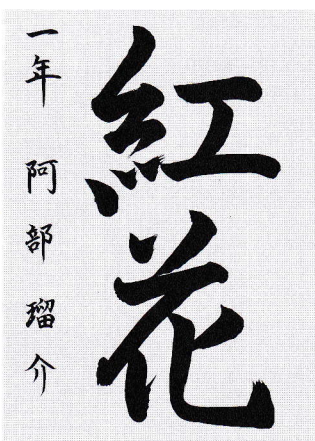 紅花
一年 阿部瑠介